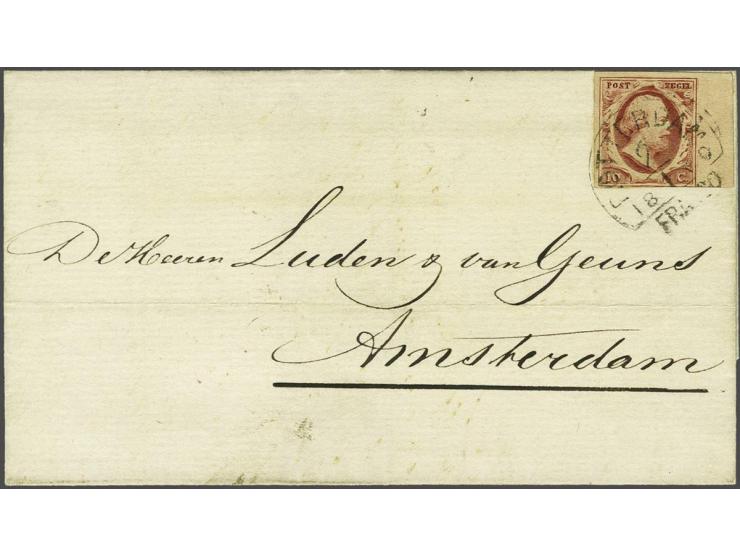 POST ZEGEL
10 C.
De Heeren Luden & van Geuns
Amsterdam